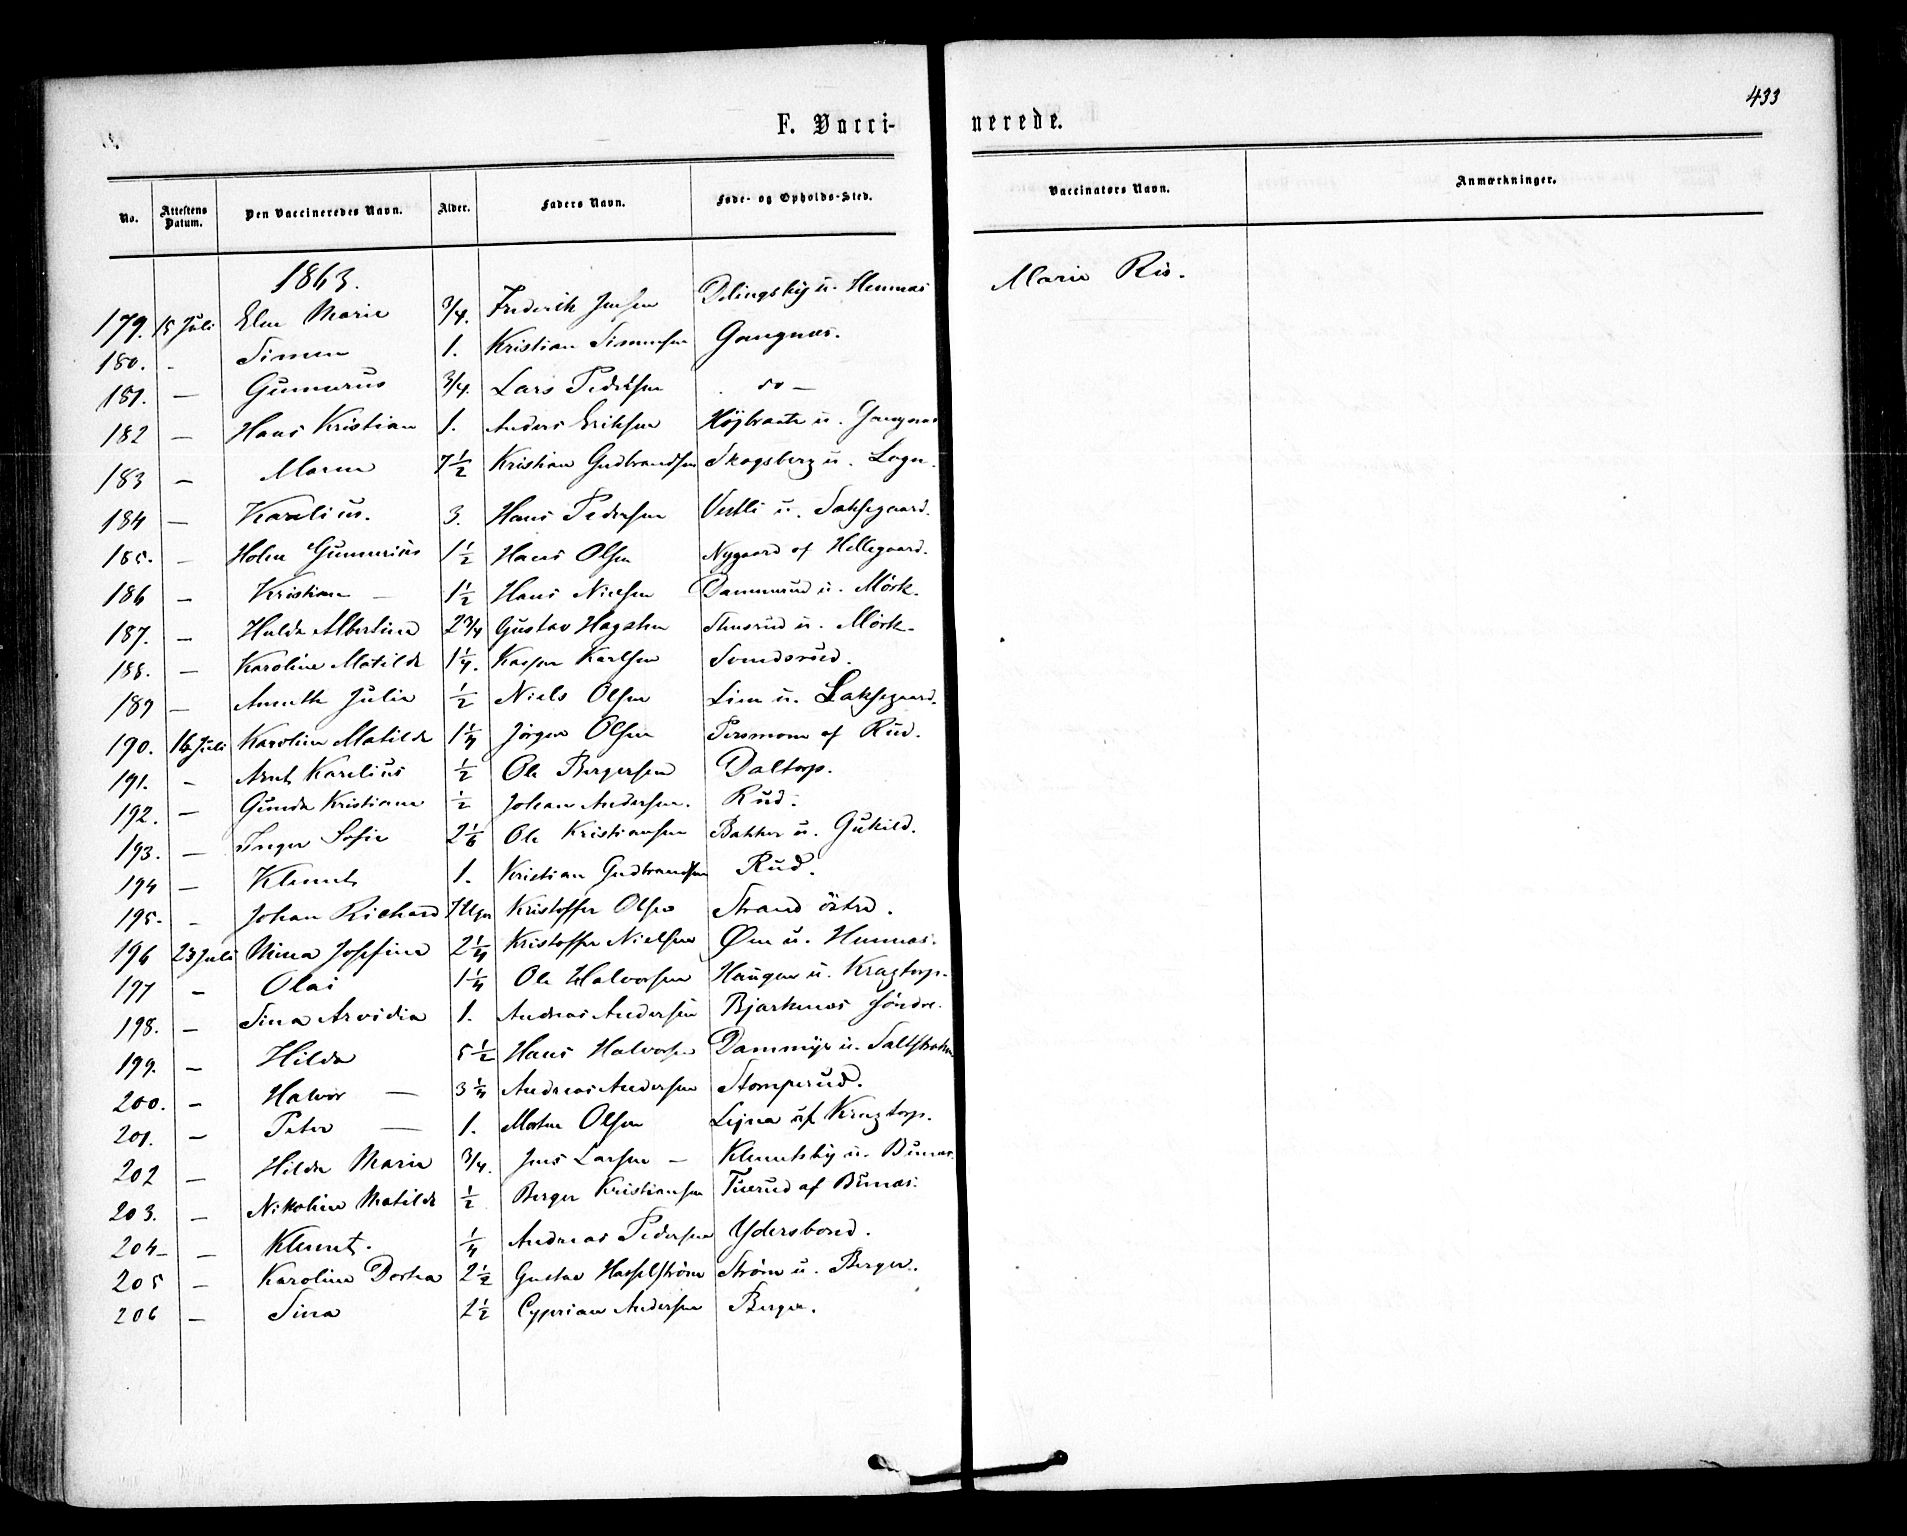 433
F. Vaccinerede.
No. Attestens Datum. Den Vaccineredes Navn. Alder. Faders Navn. Føde- og Opholds-Sted. Vaccinators Navn. Anmærkninger.
1863.
179. 15 Juli Elen Marie 3/4. Frederik Jensen Delingsby u. Hennæs Marie Ris.
180. - Simen 1. Kristian Simensen Gangnæs.
181. — Gunnerus 3/4. Lars Pedersen do —
182 — Hans Kristian 1. Anders Eriksen Højbraate u. Gangnæs
183 — Maren 7 1/2 Kristian Gudbrandsen Skogsberg u.
184 — Karelius. 3. Hans Pedersen Vestli u. Saksegaard.
185. - Gunnerius 1 1/2 Hans Olsen Nygaard af Hellegaard.
186 — Kristian — 1 1/2 Hans Nielsen Dammerud u. Mörk.
187. — Hulda Albertine 2 3/4 Gustav u. Mörk.
188. — Karoline Matilde 1 1/4. Kasper Karlsen
189 — Annethe Julie 1/2 Niels Olsen Lien u. Saksegaard.
190. 16 Juli Karoline Matilde 1 1/4 Jörgen Olsen af Rud.
191. - Arnt Karelius 1/2 Ole Bergersen Daltorp.
192. — Gunda Kristiane 1/2 Johan Andersen. Rud.
193. — Inger Sofie 2 1/6 Ole Kristiansen Bakken u. Gukild.
194 — Klemet 1. Kristian Gudbrandsen Rud.
195. - Johan Richard 7 Uger Kristoffer Olsen Strand östre.
196 23 Juli Mina Josefine 2 1/4 Kristoffer Nielsen Øen u. Hennæs.
197 - Olai 1 1/4 Ole Halvorsen Haugen u. Kragtorp.
198. — Sina Arvidia 1. Andreas Andersen Bjærknæs söndre.
199. — Hilda 5 1/2 Hans Halvorsen Dammyr u.
200. — Halvor — 3 1/4 Andreas Andersen Stomperud.
201. — Peter — 1. Morten Olsen af Kragtorp.
202 — Hilda Marie 3/4. Jens Larsen — Klemetsby u. Bunæs.
203. — Nikoline Matilde 1/2 Berger Kristiansen af Bunæs.
204 — — Klemet. 1/4 Andreas Pedersen Ydersbond.
205 — Karoline Dortea 2 1/2 Gustav Hasselström Ström u. Berger.
206 — Sina 2 1/2 Cyprian Andersen Berger.